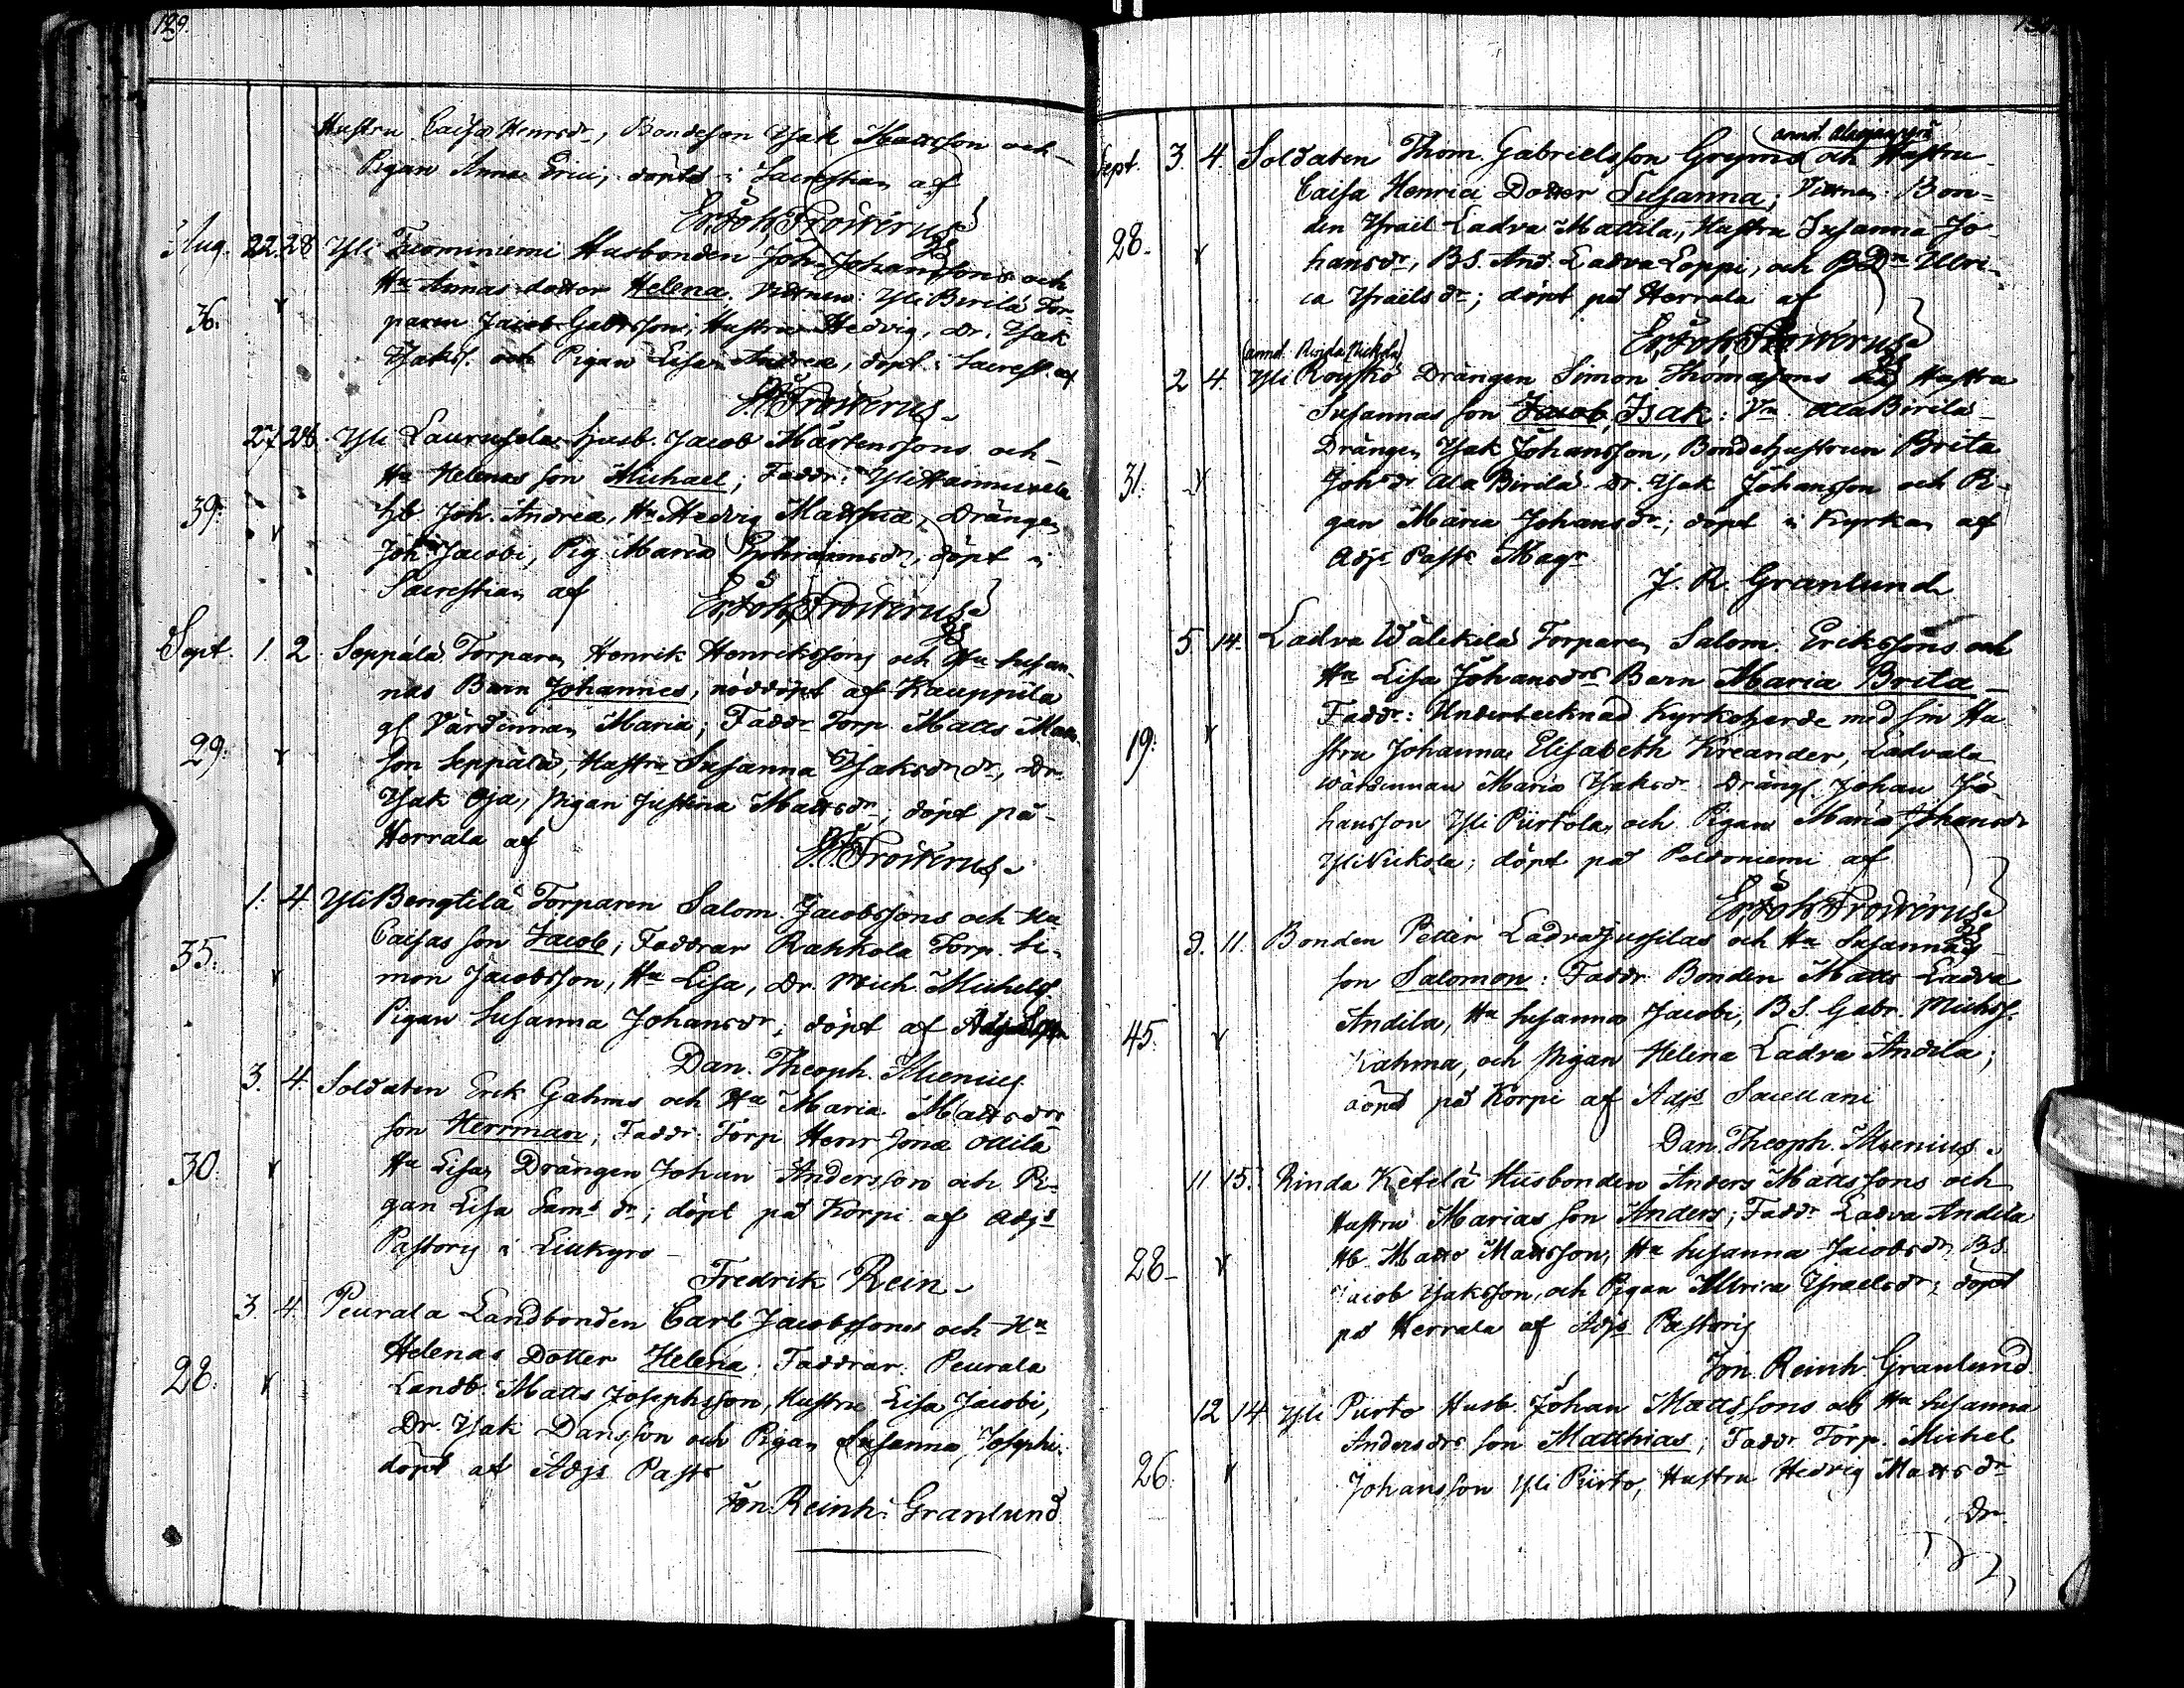 129.
Hustru Caisa Henrsdr, Bondeson Isak Mattsson och
Pigan Anna Erici, döpts i Sacrestian af
Er. Joh. Frosterus
Aug. 22. 28 Yli Tuominiemi Husbonden Joh. Johanssons och
Hu Annas dotter Helena. Vittnen: Yli Birilä Tor-
36. paren Jacob Gabrsson, Hustru Hedvig, Dr. Isak
Isaks. och Pigan Lisa Andreæ, döpt i Sacrest. af
Frosterus
27 28. Yli Laurusela husb. Jacob Mårtenssons och
Hu Helenas son Michael; Faddr: Yli Hannuxela
39. hb Joh. Andreæ, Hu Hedvig Mathiæ, Drängen
Joh. Jacobi, Pig. Maria Ephraimsdr, döpt i
Sacrestian af Er. Joh. Frosterus
Sept. 1. 2 Seppälä Torparen Henrik Henrikssons och Hu Susan-
nas Barn Johannes, nöddöpt af Kauppila
gl Värdinnan Maria; Faddr Torp. Matts Matts-
29. son Seppälä, Hustru Susanna Isaksdr, Dr.
Isak Oja, pigan Justina Mattsdr; döpt på
Herrala af Frosterus
1. 4 Yli Bengtilä Torparen Salom. Jacobssons och Hu
Caisas son Jacob; Faddrar Rahkola Torp. Si-
35. mon Jacobsson, Hu Lisa, Dr. Mich. Michels.
Pigan Susanna Johansdr; döpt af
Dan. Theoph. Mienius
3. 4. Soldaten Erik Gahms och Hu Maria Mattsdrs
son Herrman; Faddr: Torp Henr Jona Ollila
30. Hu Lisa, Drängen Johan Andersson och Pi-
gan Lisa Sams dr; döpt på Korpi af Adjs
Pastoris i Lillkyro
Fredrik Rein
3. 4. Peurala Landbonden Carl Jacobssons och Hu
Helenas Dotter Helena; Faddrar: Peurala
28. Landb. Matts Josephsson, Hustru Lisa Jacobi,
Dr. Isak Dansson och Pigan Susanna Josephi
döpt af Adjs Pastr
Jon. Reinh. Granlund
Sept. 3. 4. Soldaten Thom. Gabrielsson Gryms och Hustru
Caisa Henrici Dotter Susanna; Vittnen: Bon-
28. den Israil Ladva Mattila, Hustru Susanna Jo-
hansdr, BS. And. Ladva Loppi, och BDr Ulri-
ca Israils dr; döpt på Herrala af
Er. Joh. Frosterus
(annd. Rinda Nickola)
2 4. Yli Royskö Drängen Simon Thomasons Hustru
Susannas son Jacob, Isak: Vn Ala Birilä
Drängen Isak Johansson, Bondehustrun Brita
31. Johsdr Ala Birilä Dr. Isak Johansson och Pi-
gan Maria Johansdr; döpt i Kyrkan af
Adjs Pasts Magr
J. R. Granlund
5. 14. Ladva Wälikilä Torparen Salom. Erikssons och
Hu Lisa Johansdrs Barn Maria Brita
Faddr: Undertecknad Kyrkoherde med sin Hu-
19. stru Johanna Elisabeth Kreander, Ladvala
Wärdinnan Maria Isaksdr Drängs Johan Jo-
hansson Yli Piirtola, och Pigan Maria Johansdr
Yli Nickola; döpt på Peldoniemi af
Er. Joh. Frosterus
9. 11. Bonden Petter Ladvajussilas och Hu Susannas
son Salomon: Faddr Bonden Matts Ladva
Andila, Hu Susanna Jacobi, BS. Gabr. Michss.
45. Kahma, och pigan Helena Ladva Andila;
döpt på Korpi af Adjs Sacellani
Dan. Theoph. Mienius
11 15. Rinda Ketelä Husbonden Anders Mattssons och
Hustru Marias son Anders; Faddr Ladva Andila
Hb. Matts Mattsson, Hu Susanna Jacobsdr, BS.
28 Jacob Isaksson, och Pigan Ulrica Israelsdr; döpt
på Herrala af Adjs Pastoris
Jon. Reinh. Granlund
12 14 Yli Purto Husb. Johan Mattssons och Hu Susanna
Andersdrs son Matthias; Faddr Torp. Michel
26. Johansson Yli Purto, Hustru Hedvig Mattsdr
Dr.